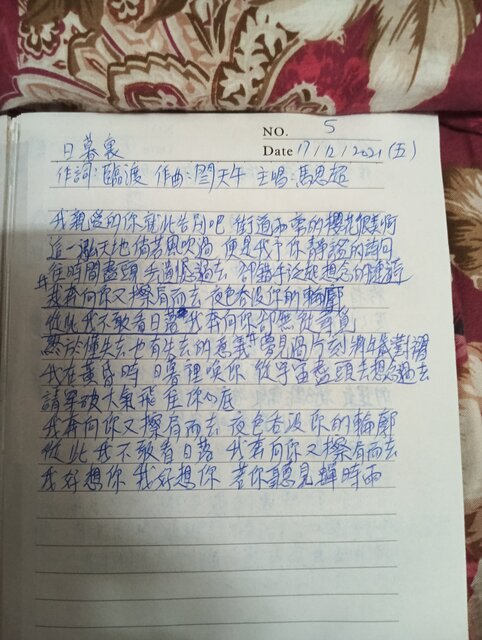 NO. 5
Date 17/12/2021 (五)
日暮裏
作詞:臨渡 作曲:閆天午 主唱:馬思超
我親愛的你就此告別吧 街道兩旁的櫻花很美啊
這一泓天地倘若風吹過 便是我予你靜謐的
往時間盡頭 去回憶過去 卻錯手沒死想念的
#我奔向你又擦肩而去 夜色吞沒你的輪廓
從此我不敢看日落 我奔向你卻無從尋覓
終於懂失去也有失去的意義# 夢見過片刻 對謂
我在黃昏時 日暮裡喚你 從宇宙盡頭去想念過去
請穿破大氣 飛往你心底
我奔向你又擦肩而去 夜色吞沒你的輪廓
從此我不敢看日落 我奔向你又擦肩而去
我好想你 我好想你 若你聽見蟬時雨